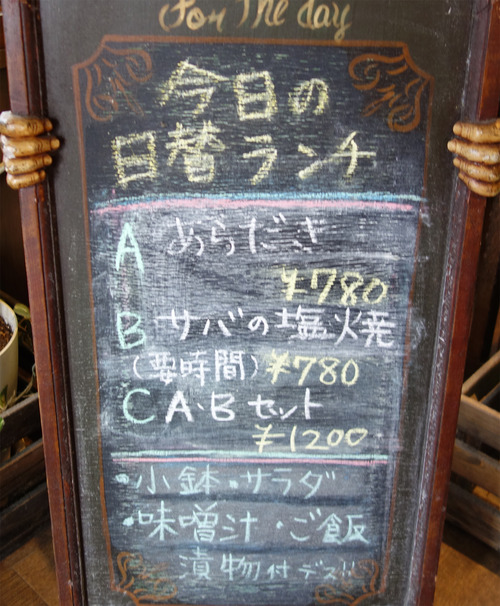 For The day
今日の
日替ランチ
A あらだき
¥780
B サバの塩焼
(要時間) ¥780
C A・Bセット
¥1200
・小鉢・サラダ
・味噌汁・ご飯
漬物付デス!!